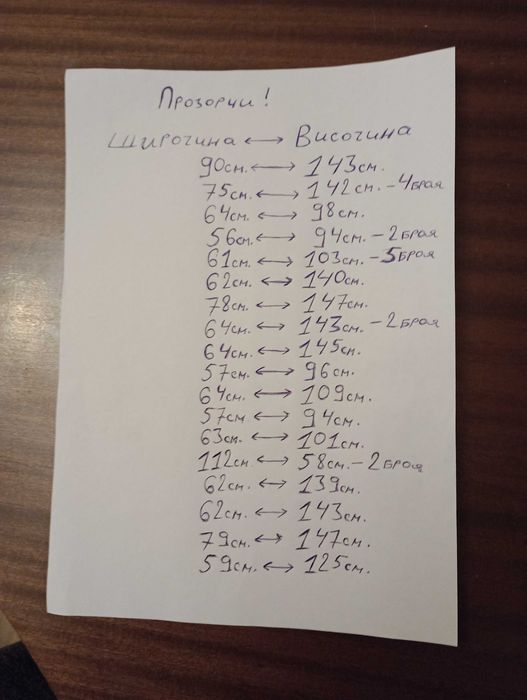 Прозорци!
Широчина ↔ Височина
90см. ↔ 143см.
75см. ↔ 142см. - 4броя
64см. ↔ 98см.
56см. ↔ 94см. - 2броя
61см. ↔ 103см. - 5броя
62см. ↔ 140см.
78см. ↔ 147см.
64см. ↔ 143см. - 2броя
64см. ↔ 145см.
57см. ↔ 96см.
64см. ↔ 109см.
57см ↔ 94см.
63см. ↔ 101см.
112см. ↔ 58см. - 2броя
62см. ↔ 139см.
62см. ↔ 143см.
79см. ↔ 147см.
59см. ↔ 125см.